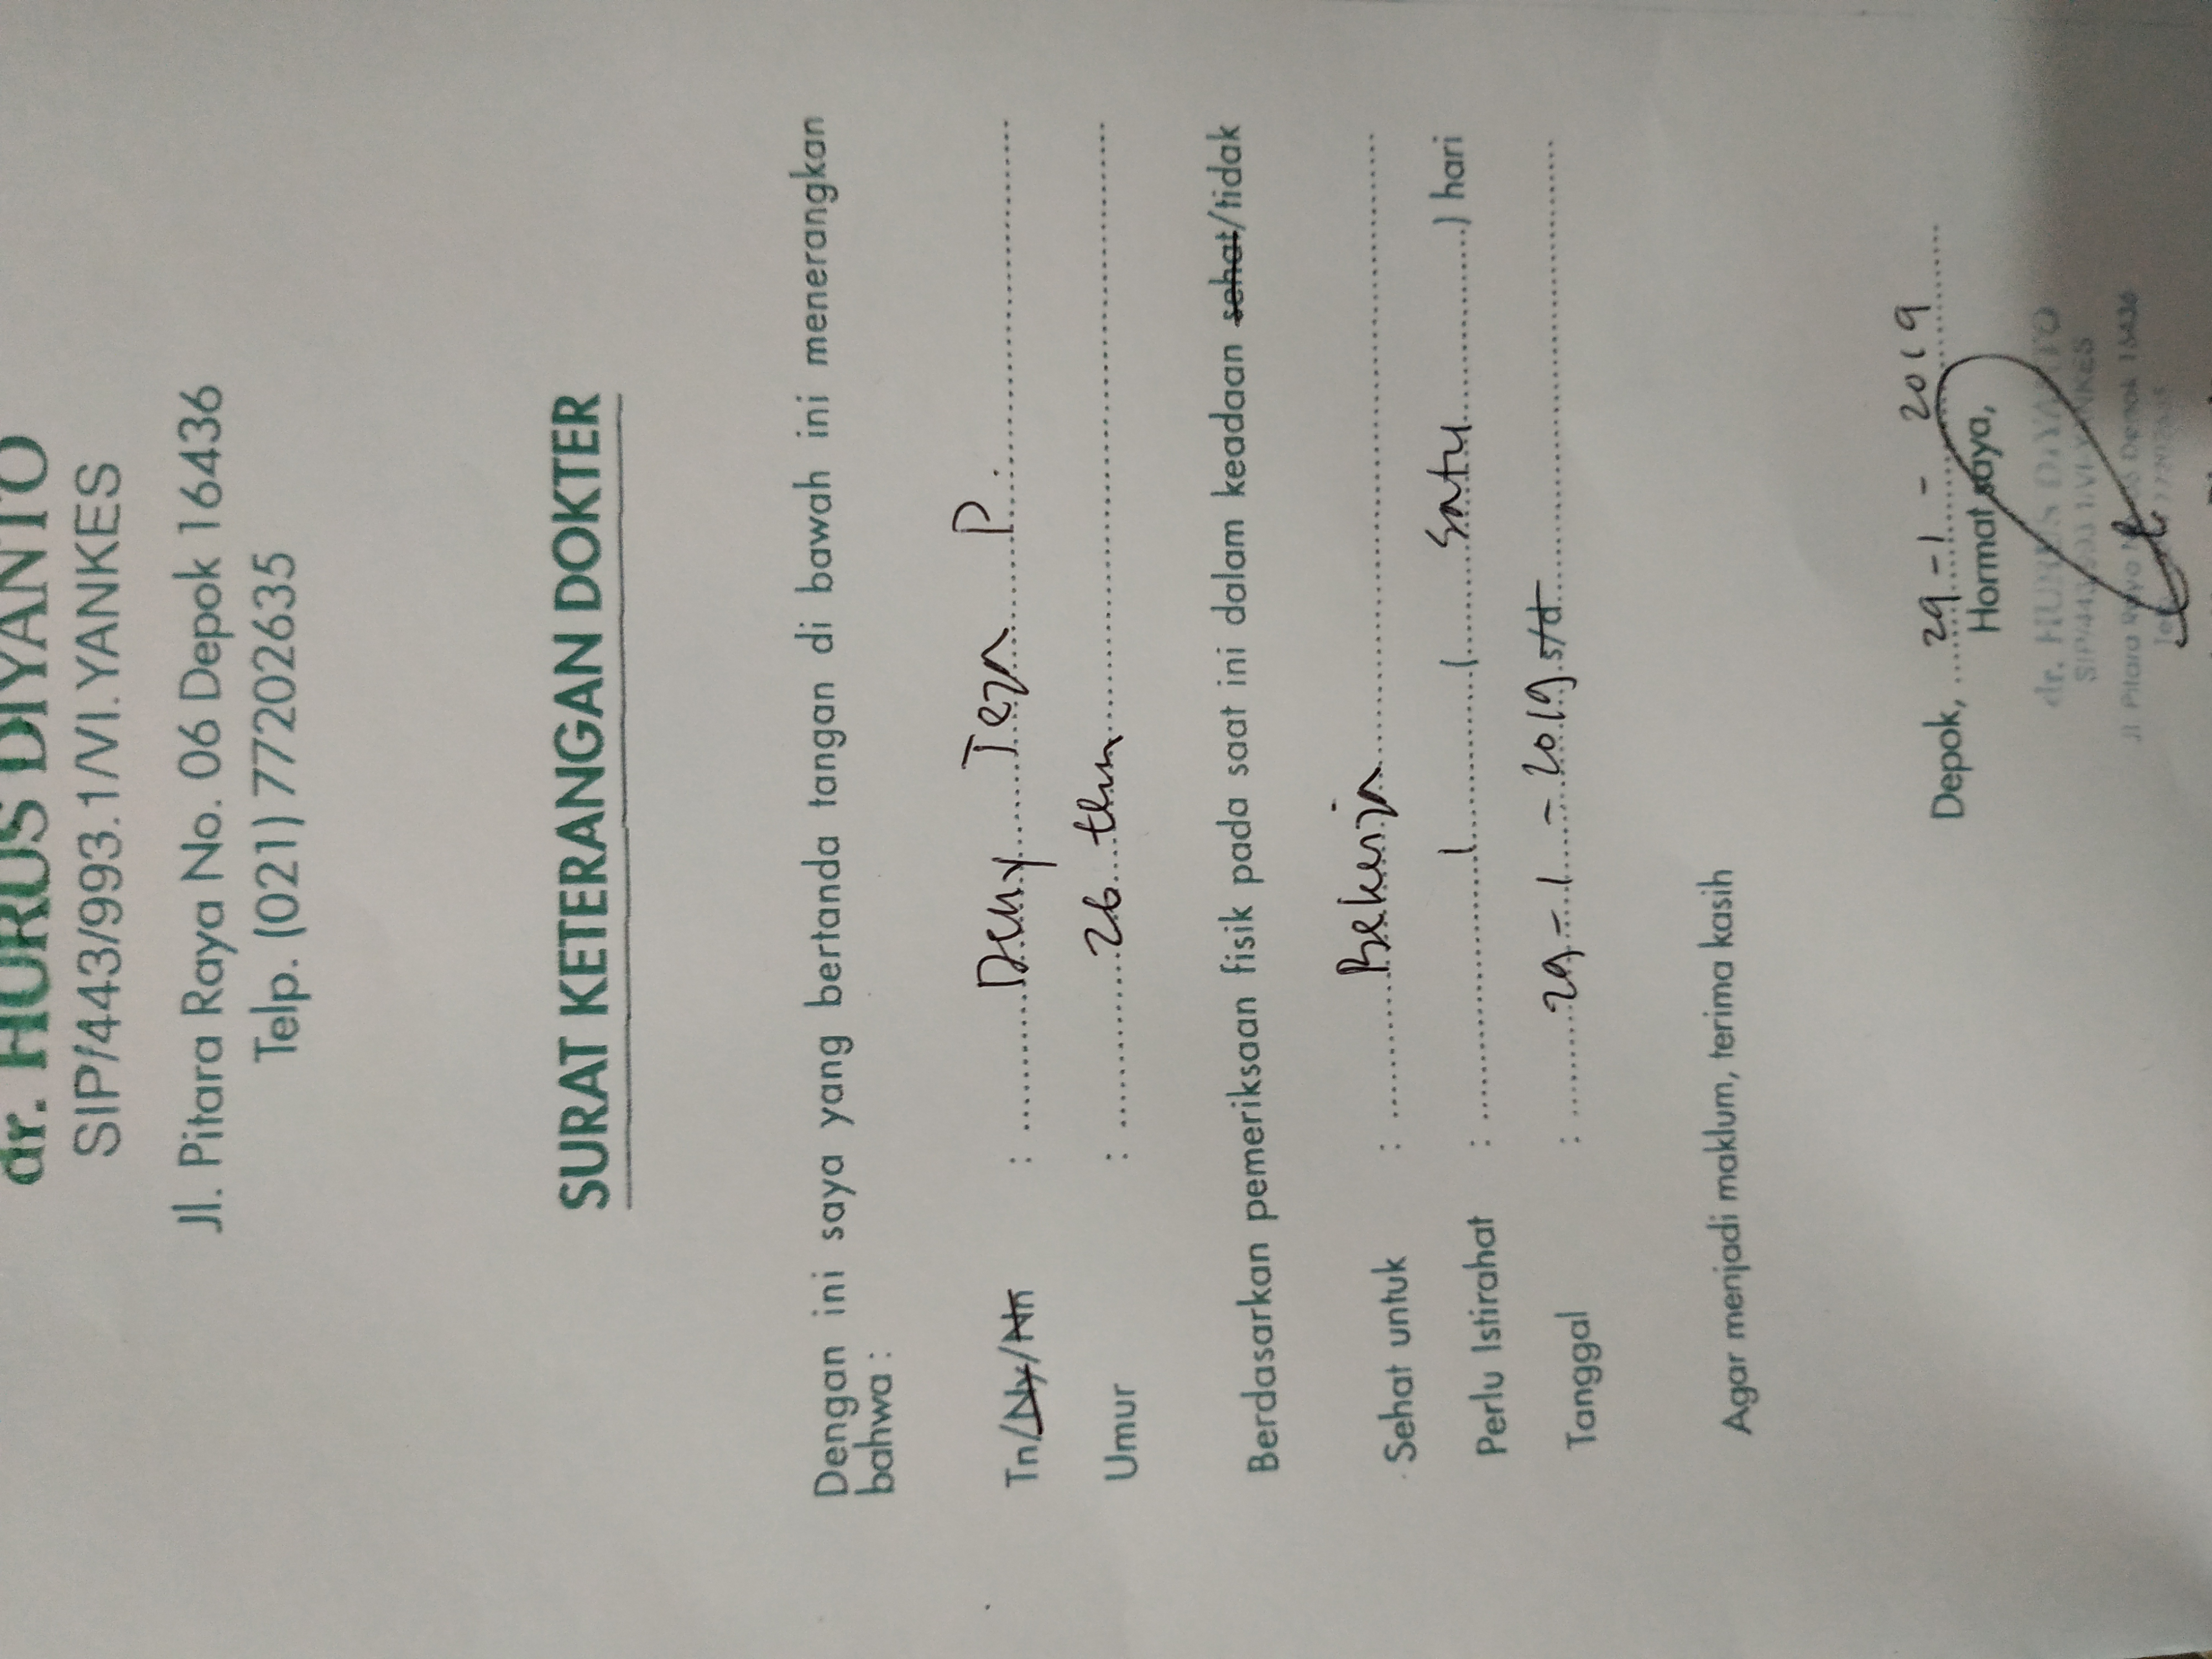 dr. HURUS DIYANTO
SIP/443/993.1/VI.YANKES
Jl. Pitara Raya No. 06 Depok 16436
Telp. (021) 77202635
SURAT KETERANGAN DOKTER
Dengan ini saya yang bertanda tangan di bawah ini menerangkan
bahwa :
Tn/Ny/Nn : Deny Teza P.
Umur : 26 thn
Berdasarkan pemeriksaan fisik pada saat ini dalam keadaan sehat/tidak
Sehat untuk : Bekerja
Perlu Istirahat : 1 ( satu ) hari
Tanggal : 29-1-2019 s/d
Agar menjadi maklum, terima kasih
Depok, 29-1-2019
Hormat saya,
dr. HURUS DIYANTO
SIP/443/993.1/VI-YANKES
Jl. Pitara Raya No. 06 Depok 16436
77202635